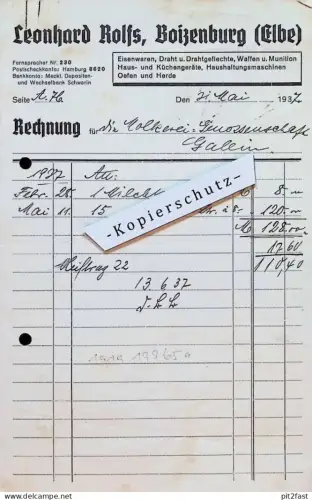 Leonhard Rolfs, Boizenburg (Elbe)
Fernsprecher Nr. 230
Postscheckkonto: Hamburg 8620
Bankkonto: Meckl. Depositen-
und Wechselbank Schwerin
Eisenwaren, Draht u. Drahtgeflechte, Waffen u. Munition
Haus- und Küchengeräte, Haushaltungsmaschinen
Oefen und Herde
Seite A. 76 Den 31. Mai 1937
Rechnung für die Molkerei-Genossenschaft
Gallin
1937 An:
Febr. 28 1 Milch 8.—
Mai 11. 15 120.—
M 128.—
17 60
110,40
22
13.6.37
-Kopierschutz-
© pitz2fast